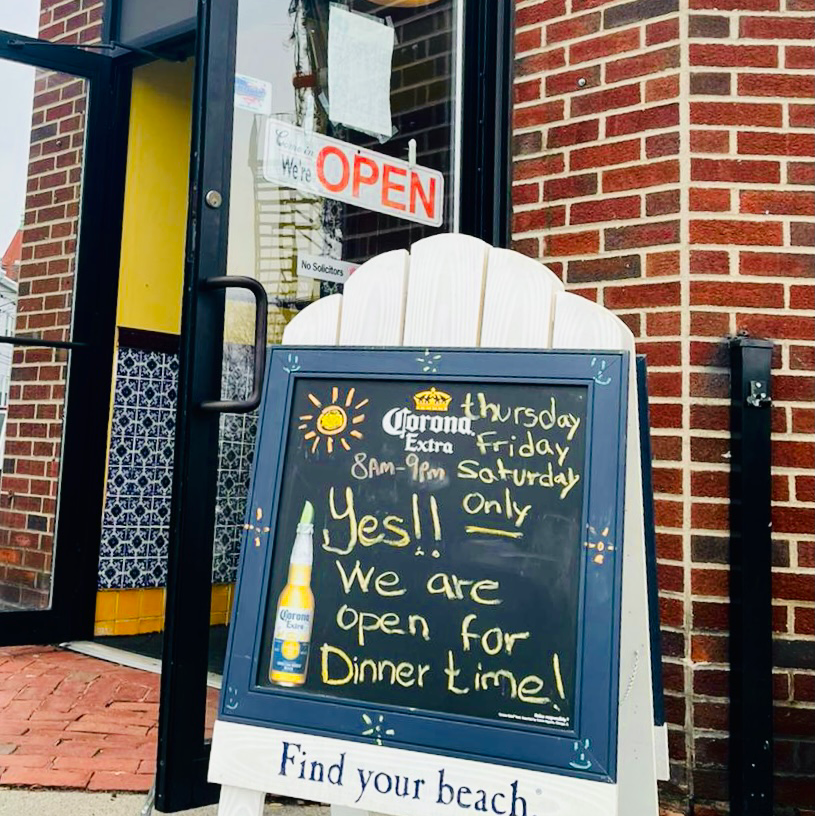 Come in
We're OPEN
No Solicitors
Corona
Extra
thursday
Friday
8AM-9PM Saturday
Only
Yes!!
We are
open for
Dinner time!
Corona
Extra
Find your beach.